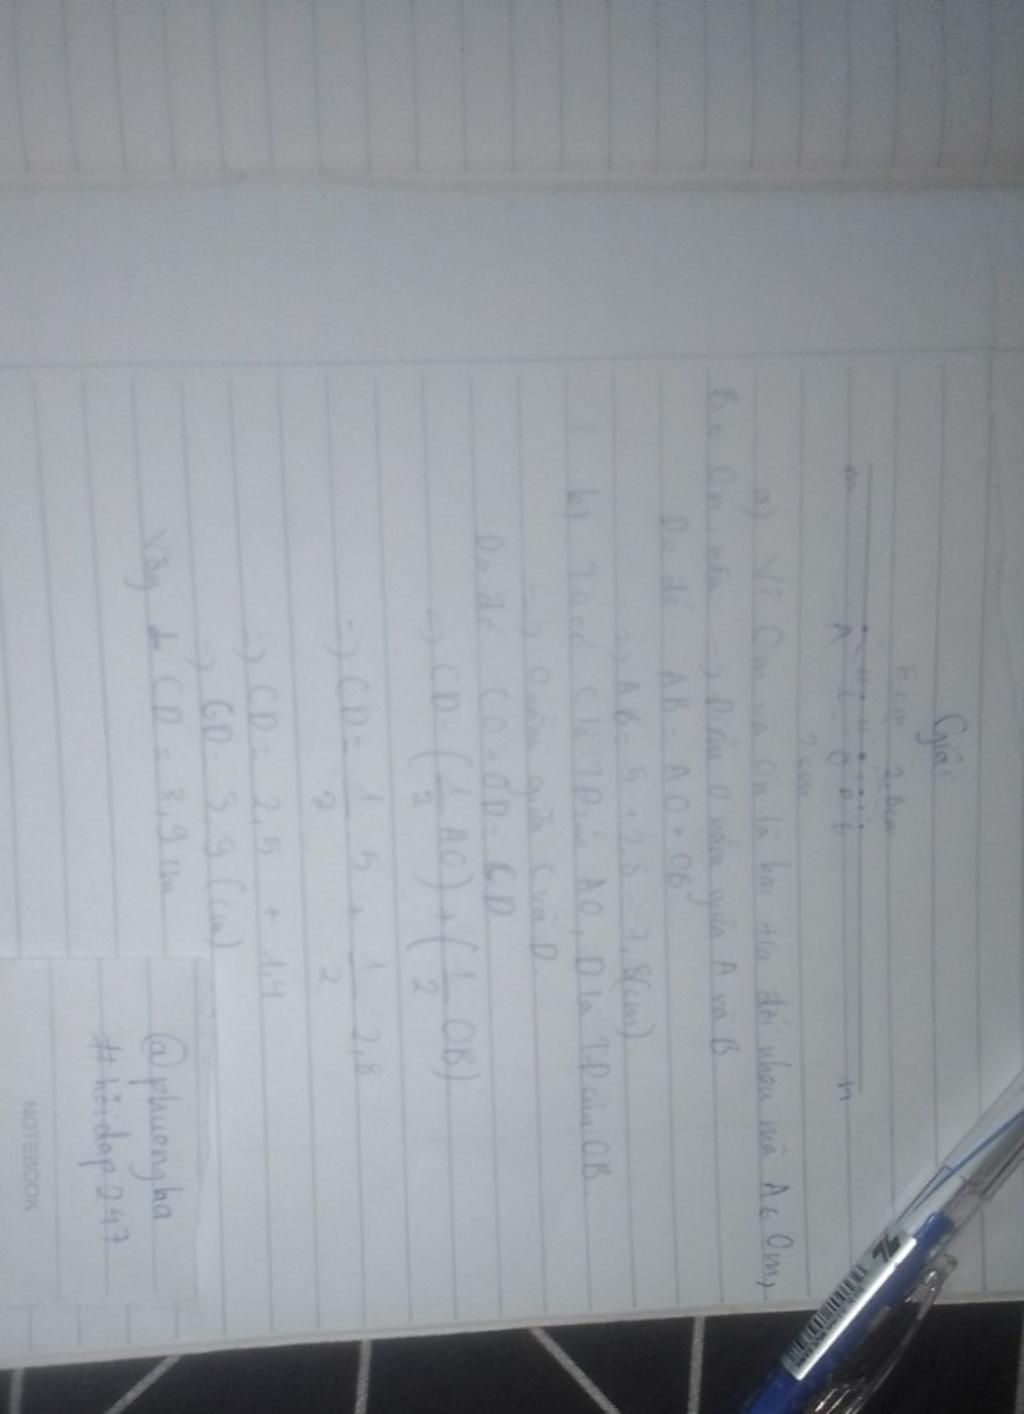 Giải
5cm 2,8cm
m A C O D B n
? cm
a) Vì Om và On là hai tia đối nhau mà A ∈ Om,
B ∈ On nên => Điểm O nằm giữa A và B
Do đó AB = AO + OB
=> AB = 5 + 2,8 = 7,8(cm)
b) Ta có C là TĐ của AO, D là TĐ của OB.
=> O nằm giữa C và D
Do đó CO + OD = CD
=> CD = (1/2 AO) + (1/2 OB)
=> CD = 1/2 5 + 1/2 2,8
=> CD = 2,5 + 1,4
=> CD = 3,9 (cm)
Vậy CD = 3,9 cm
@phuongha
#hoidap247
NOTEBOOK